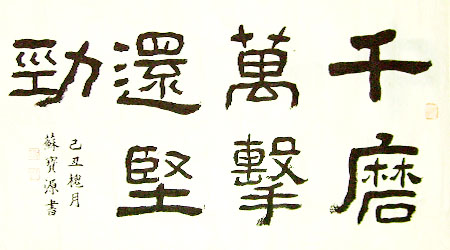 千磨
萬擊
還堅
勁
己丑槐月
蘇寶源書